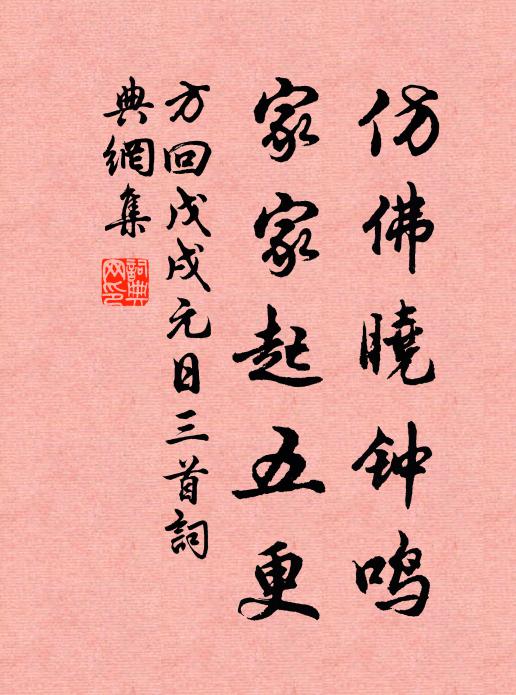 仿佛曉钟鸣
家家起五更
方回戊戌元日三首詞
典網集
詞典网印